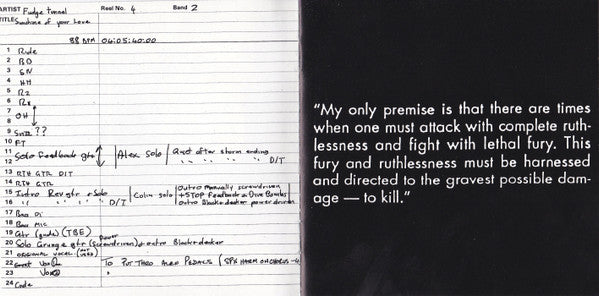 ARTIST Fudge Tunnel Reel No. 4 Band 2
TITLES Sunshine of your Love
88 BPM 04:05:40:00
1 Ride
2 BD
3 SN
4 HH
5 R2
6 Rx
7
8 OH
9 SMTE ??
10 FT
11 Solo Feedback gtr Alex Solo Quiet after storm ending
12 " " " " D/T
13 RTH GTR DIT
14 RTH GTR
15 Intro Rev gtr + Solo Colin solo Outro manually screwdriven
+ STOP Feedback & Dive Bombs
16 " " " D/T Outro Black & decker power driven
17 Bass Di
18 Bass Mic
19 Gtr (guide) (TBE)
20 Solo Grunge gtr (power screwdriven) + outro Black + decker
21 ORIGINAL VOCAL (NOT USED)
22 Vox To PUT THRO ALEX PEDALS (SPX HARM ON CHORUS -4
23 Vox
24 Code
"My only premise is that there are times
when one must attack with complete ruth-
lessness and fight with lethal fury. This
fury and ruthlessness must be harnessed
and directed to the gravest possible dam-
age — to kill."